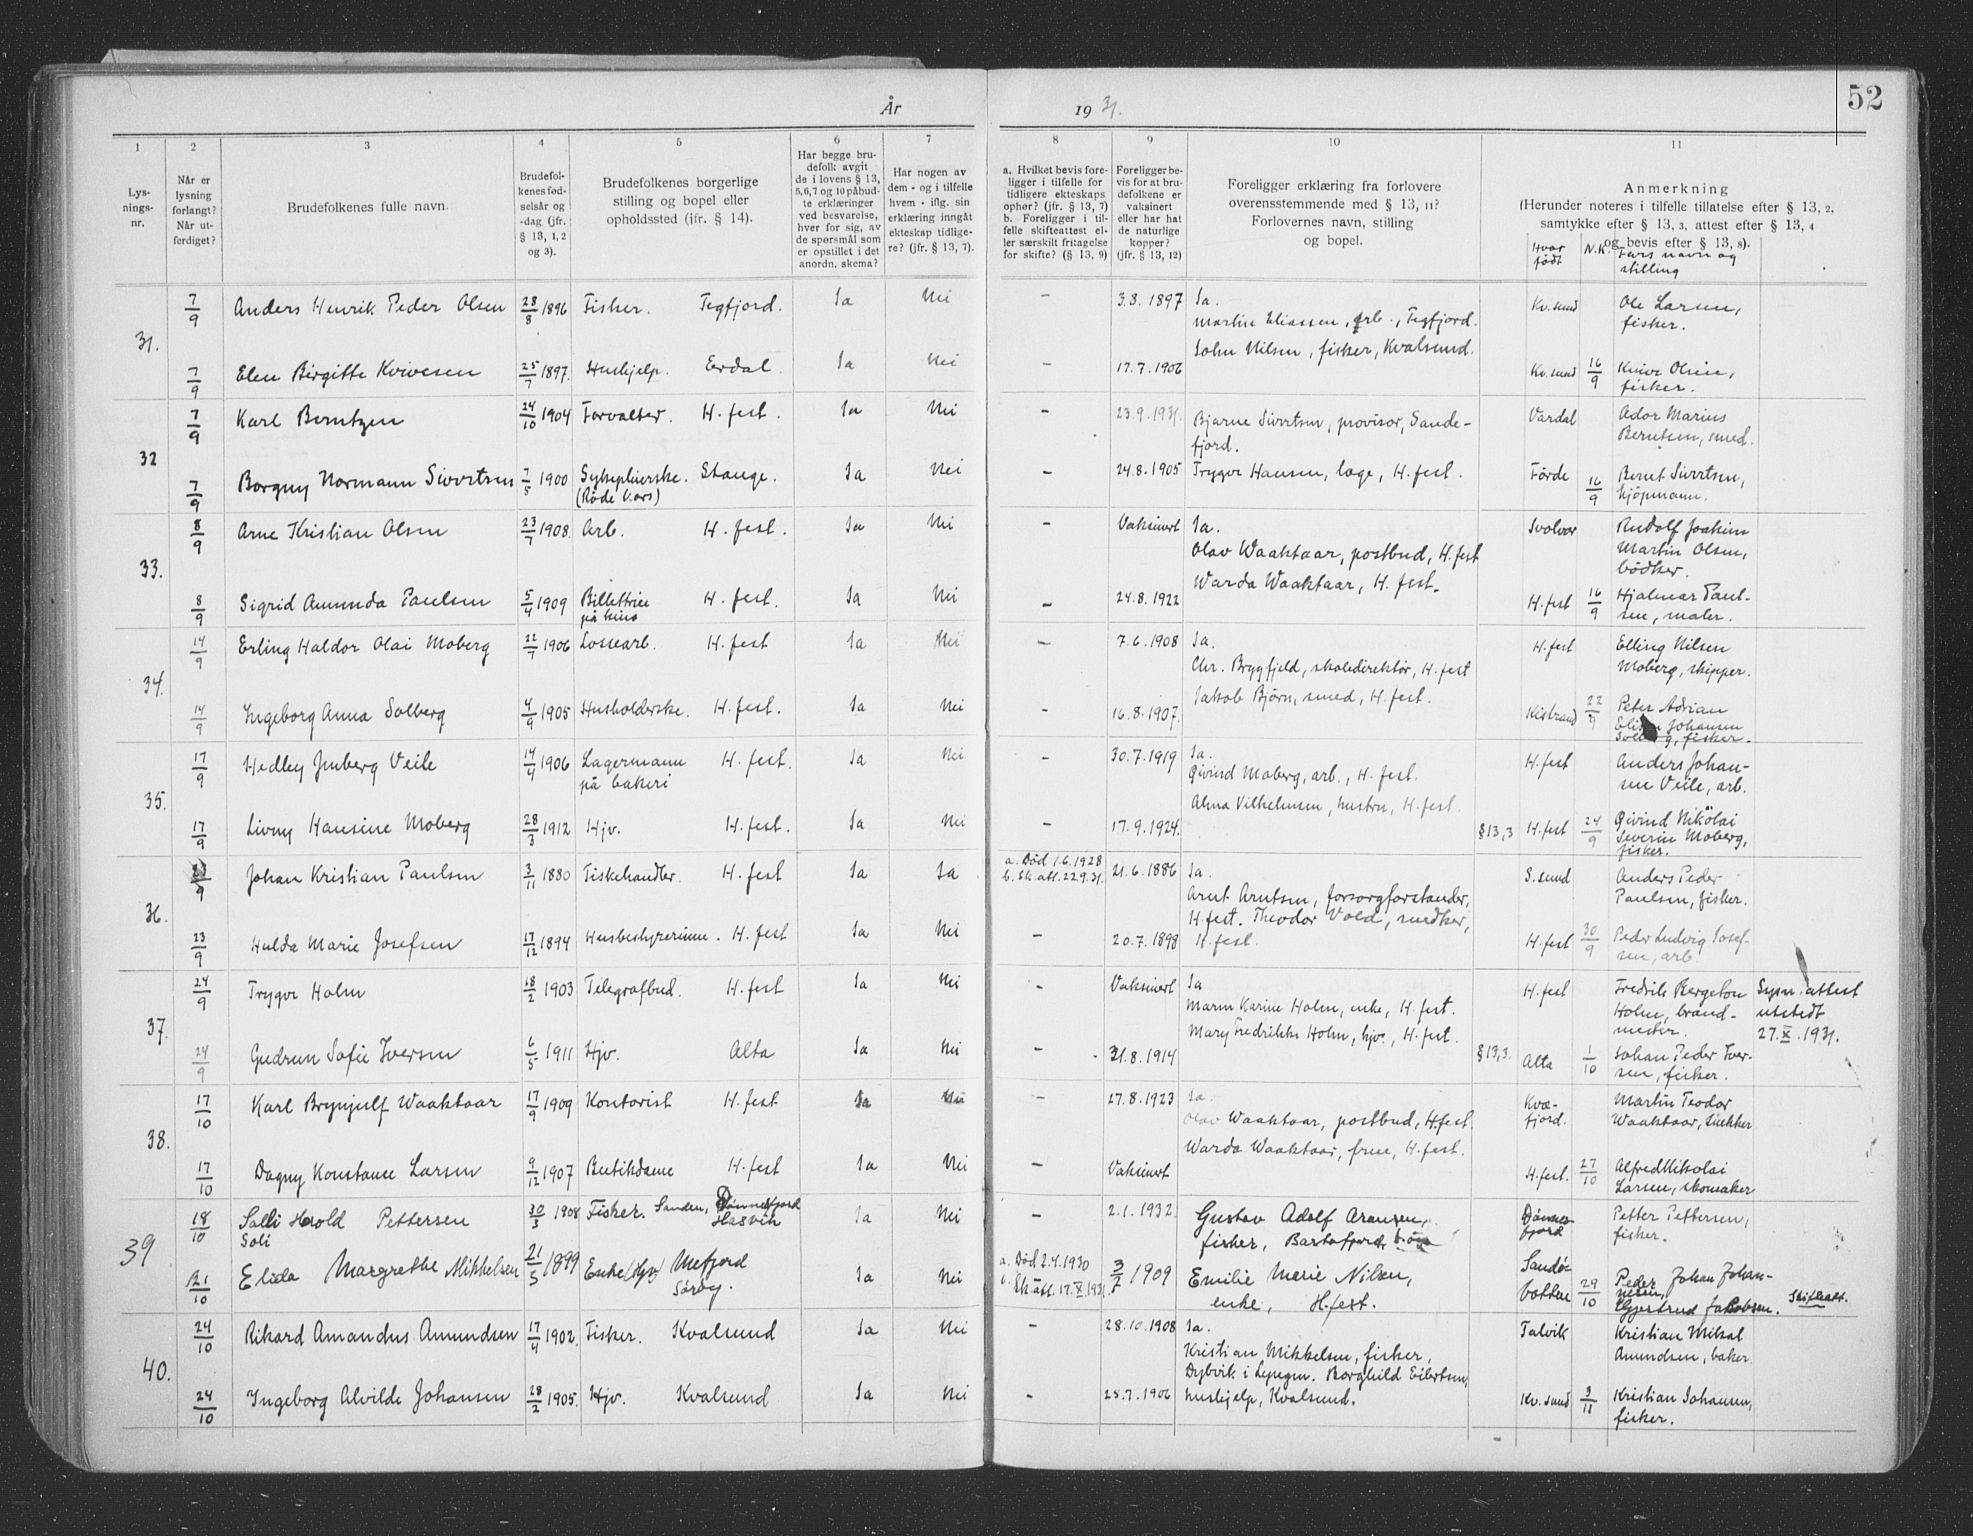 År 1931.
52
1 2 3 4 5 6 7 8 9 10 11
Lys-
nings-
nr.
Når er
lysning
forlangt?
Når ut-
ferdiget?
Brudefolkenes fulle navn.
Brudefol-
kenes fød-
selsår og
-dag (jfr.
§ 13, 1, 2
og 3).
Brudefolkenes borgerlige
stilling og bopel eller
opholdssted (jfr. § 14).
Har begge bru-
defolk avgit
de i lovens § 13,
5,6,7 og 10 påbud-
te erklæringer
ved besvarelse,
hver for sig, av
de spørsmål som
er opstillet i det
anordn. skema?
Har nogen av
dem - og i tilfelle
hvem - iflg. sin
erklæring inngått
ekteskap tidlige-
re? (jfr. § 13, 7).
a. Hvilket bevis fore-
ligger i tilfelle for
tidligere ekteskaps
ophør? (jfr. § 13, 7)
b. Foreligger i til-
felle skifteattest el-
ler særskilt fritagelse
for skifte? (§ 13, 9)
Foreligger be-
vis for at bru-
defolkene er
vaksinert
eller har hat
de naturlige
kopper?
(jfr. § 13, 12)
Foreligger erklæring fra forlovere
overensstemmende med § 13, 11?
Forlovernes navn, stilling
og bopel.
Anmerkning
(Herunder noteres i tilfelle tillatelse efter § 13, 2,
samtykke efter § 13, 3, attest efter § 13, 4
og bevis efter § 13, 8).
Hvor født N.K. Fars navn og
stilling
31. 7/9 Anders Henrik Peder Olsen 28/8 1896 Fisker. Tegfjord. Ja Nei - 3.8.1897 Ja. Kv.sund Ole Larsen,
Martin Eliassen, arb., Tegfjord. fisker.
John Nilsen, fisker, Kvalsund.
7/9 Elen Birgitte Kvivesen 25/7 1897. Hushjelp. Erdal. Ja Nei - 17.7.1906 Kv.sund 16/9 Knive Olsen,
fisker.
32 7/9 Karl Berntzen 24/10 1904 Forvalter. H.fest. Ja Nei - 23.9.1931. Bjarne Sivertsen, provisor, Sande- Vardal Ador Marius
fjord. Berntsen, smed.
7/9 Borgny Normann Sivertsen 7/5 1900 Sykepleierske. Stange. Ja Nei - 24.8.1905 Trygve Hansen, læge, H.fest. Førde 16/9 Bernt Sivertsen,
(Røde Kors) kjøpmann.
33. 8/9 Arne Kristian Olsen 23/7 1908. Arb. H.fest. Ja Nei - Vaksinert Ja. Svolvær Rudolf Joakim
Olav Waaktaar, postbud, H.fest Martin Olsen,
Warda Waaktaar, H.fest. bødker.
8/9 Sigrid Amunda Paulsen 5/4 1909 Billettrice H.fest. Ja Nei - 24.8.1922 H.fest 16/9 Hjalmar Paul-
på kino sen, maler.
34. 14/9 Erling Haldor Olai Moberg 22/7 1906 Lossearb. H.fest Ja Nei - 7.6.1908 Ja. H.fest Elling Nilsen
Chr. Brygfjeld, skoledirektør, H.fest Moberg, skipper.
Jakob Bjørn, smed, H.fest.
14/9 Ingeborg Anna Solberg 4/9 1905 Husholderske. H.fest. Ja Nei - 16.8.1907. Kistrand 22/9 Peter Adrian
Johansen
fisker.
35. 17/9 Hedley Imberg Veile 14/4 1906 Lagermann H.fest. Ja Nei - 30.7.1919 Ja. H.fest Anders Johan-
på bakeri Øivind Moberg, arb., H.fest. sen Veile, arb.
Alma Vilhelmsen, hustru, H.fest.
17/9 Livny Hansine Moberg 28/3 1912 Hjv. H.fest. Ja Nei - 17.9.1924. § 13,3 H.fest 24/9 Øivind Nikolai
Severin Moberg,
fisker.
36. 23/9 Johan Kristian Paulsen 3/11 1880 Fiskehandler. H.fest Ja Ja a. Død 1.6.1928 21.6.1886 Ja. S.sund Anders Peder
b. Sk.att. 22.9.31. Arnt Arntsen, forsorgforstander, Paulsen, fisker.
H.fest. Theodor Vold, snedker,
23/9 Hulda Marie Josefsen 17/12 1894 Husbestyrerinne. H.fest Ja Nei - 20.7.1898 H.fest. H.fest 30/9 Peder Ludvig Josef-
sen, arb.
37. 24/9 Trygve Holm 18/2 1903 Telegrafbud. H.fest Ja Nei - Vaksinert Ja H.fest Fredrik Bergeton Syn.attest
Maren Karine Holm, enke, H.fest. Holm, brand- utstedt
Mary Fredrikke Holm, hjv., H.fest. mester. 27.X.1931.
24/9 Gudrun Sofie Iversen 6/5 1911 Hjv. Alta Ja Nei - 31.8.1914 § 13,3. Alta 1/10 Johan Peder Iver-
sen, fisker.
38. 17/10 Karl Brynjulf Waaktaar 17/9 1909 Kontorist H.fest Ja Nei - 27.8.1923 Ja. Kvæ-
fjord. Martin Teodor
Olav Waaktaar, postbud, H.fest. Waaktaar, snekker
Warda Waaktaar, frue, H.fest.
17/10 Dagny Konstanse Larsen 9/12 1907 Butikdame H.fest Ja Nei - Vaksinert H.fest. 27/10 Alfred Nikolai
Larsen, skomaker
39 18/10 Salli Harold Pettersen 30/3 1908 Fisker. Sanden, Dønnesfjord Ja Nei - 2.1.1932. Gustav Adolf Aronsen, Dønnes-
fjord Petter Pettersen,
Soli Hasvik fisker, fisker.
21/10 Elida Margrethe Mikkelsen 21/5 1899 Enke (Hjv) Mefjord Ja Nei a. Død 2.4.1930 3/7 1909 Emilie Marie Nilsen, Sandø-
botten 29/10 Peder Johan Johan-
Sørøy. b. Sk.att. 17.X.1931 enke, H.fest. nesen,
Gjertrud Jakobsen. Skifteatt.
40. 24/10 Rikard Amandus Amundsen 17/4 1902. Fisker. Kvalsund Ja Nei - 28.10.1908 Ja. Talvik Kristian Mikal
Kristian Mikkelsen, fisker, Amundsen, baker.
Dybvik i Lyngen. Borghild Eilertsen,
24/10 Ingeborg Alvilde Johansen 28/2 1905. Hjv. Kvalsund Ja Nei - 25.7.1906 hushjelp, Kvalsund. Kv.sund 3/11 Kristian Johansen,
fisker.